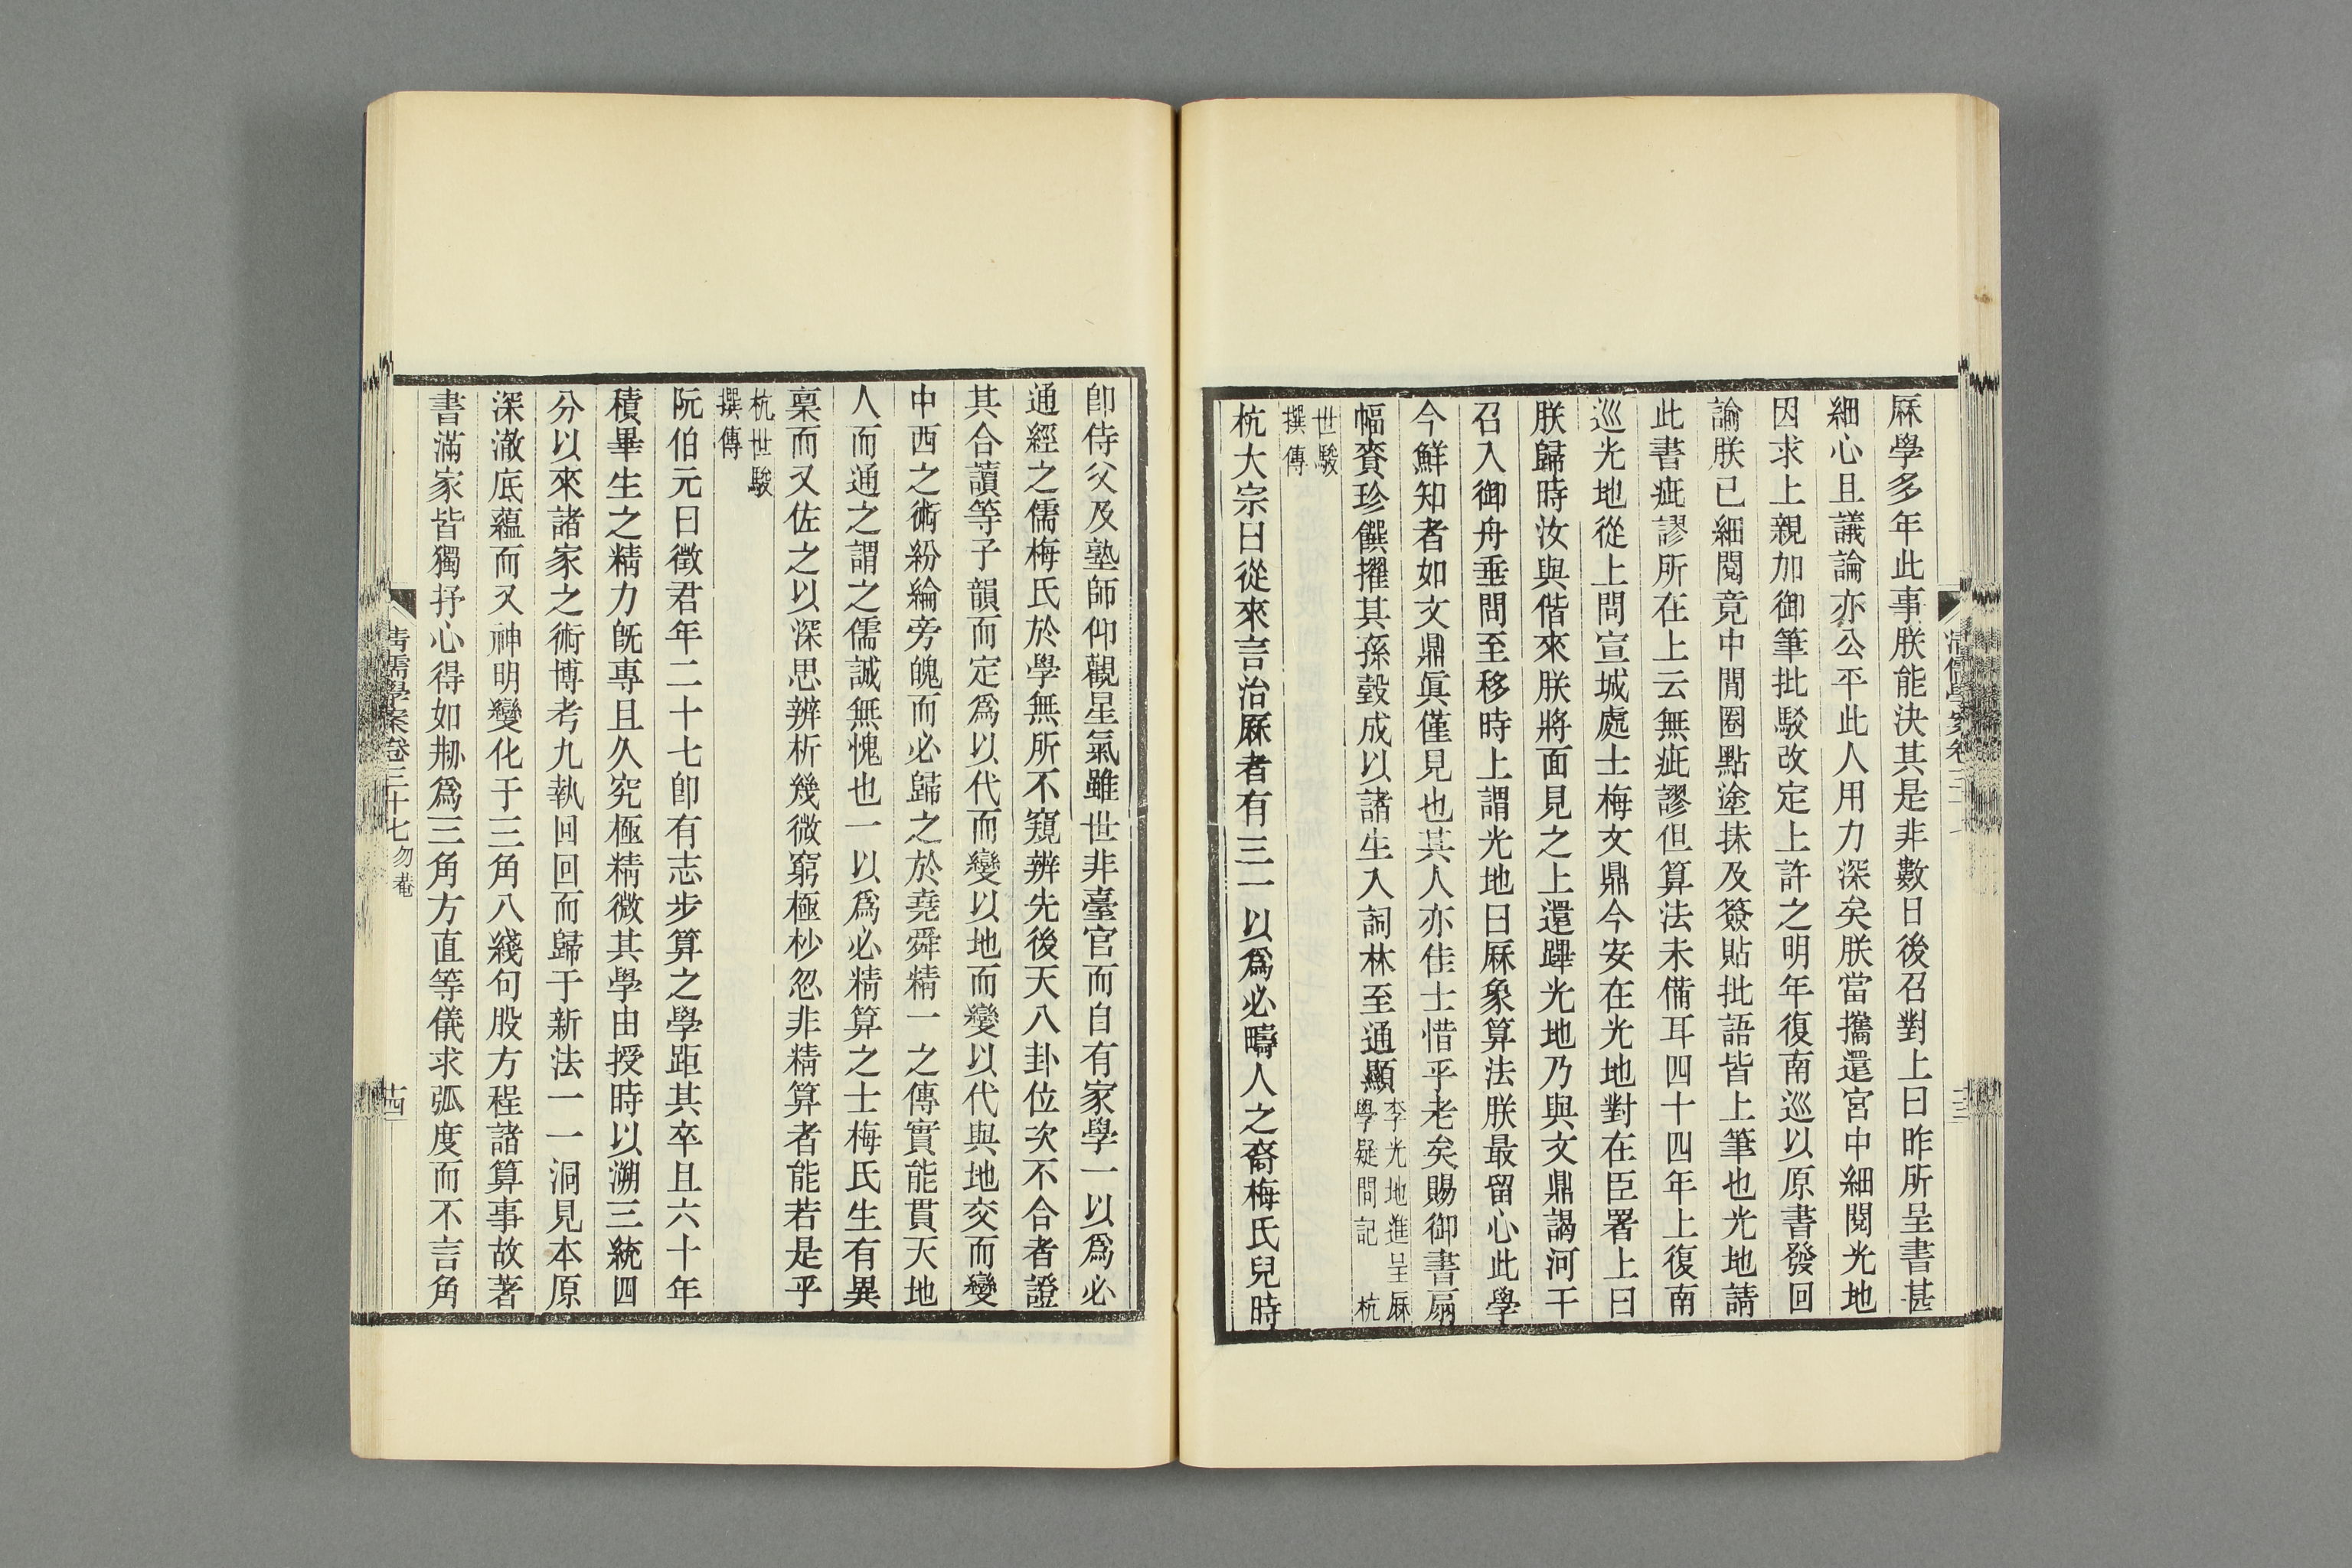 厤學多年此事朕能決其是非數日後召對上曰昨所呈書甚
細心且議論亦公平此人用力深矣朕當攜還宮中細閱光地
因求上親加御筆批駁改定上許之明年復南巡以原書發回
諭朕已細閱竟中閒圈點塗抹及簽貼批語皆上筆也光地請
此書疵謬所在上云無疵謬但算法未備耳四十四年上復南
巡光地從上問宣城處士梅文鼎今安在光地對在臣署上曰
朕歸時汝與偕來朕將面見之上還蹕光地乃與文鼎謁河干
召入御舟垂問至移時上謂光地曰厤象算法朕最留心此學
今鮮知者如文鼎眞僅見也其人亦佳士惜乎老矣賜御書扇
幅賚珍饌擢其孫瑴成以諸生入詞林至通顯李光地進呈厤
學疑問記 杭
世駿
撰傳
杭大宗曰從來言治厤者有三一以爲必疇人之裔梅氏兒時
清儒學案卷三十七
十三
卽侍父及塾師仰觀星氣雖世非臺官而自有家學一以爲必
通經之儒梅氏於學無所不窺辨先後天八卦位次不合者證
其合讀等子韻而定爲以代而變以地而變以代與地交而變
中西之術紛綸旁魄而必歸之於堯舜精一之傳實能貫天地
人而通之謂之儒誠無愧也一以爲必精算之士梅氏生有異
稟而又佐之以深思辨析幾微窮極杪忽非精算者能若是乎
杭世駿
撰傳
阮伯元曰徵君年二十七卽有志步算之學距其卒且六十年
積畢生之精力旣專且久究極精微其學由授時以溯三統四
分以來諸家之術博考九執回回而歸于新法一一洞見本原
深澈底蘊而又神明變化于三角八綫句股方程諸算事故著
書滿家皆獨抒心得如刱爲三角方直等儀求弧度而不言角
清儒學案卷三十七 勿菴
十四